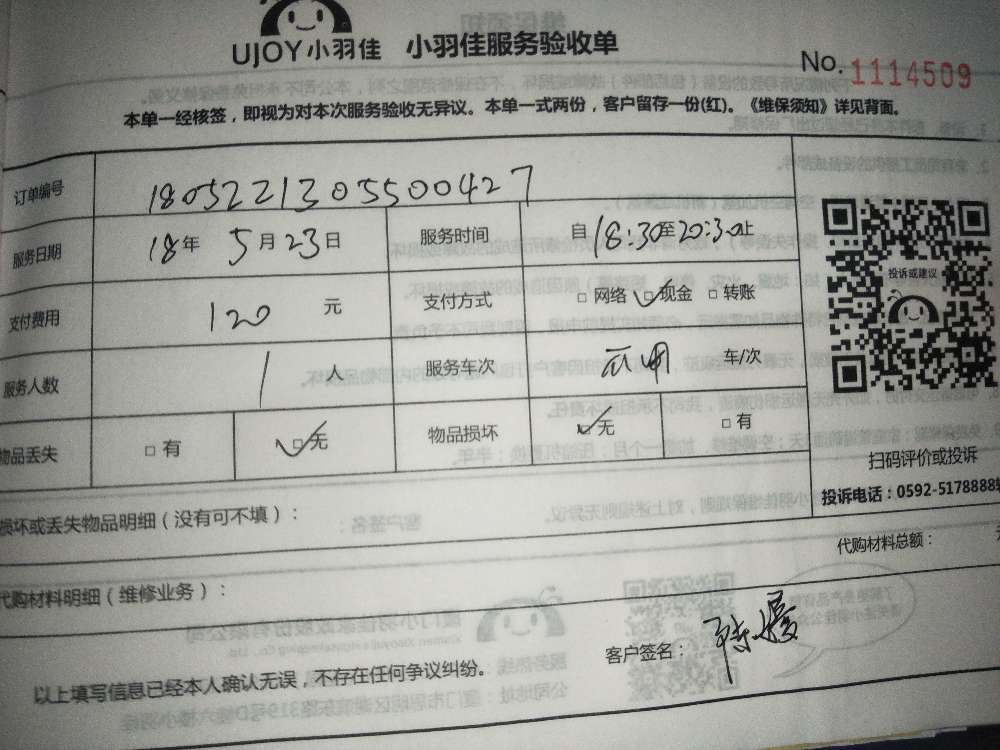 UJOY小羽佳 小羽佳服务验收单
No. 1114509
本单一经核签，即视为对本次服务验收无异议。本单一式两份，客户留存一份(红)。《维保须知》详见背面。
订单编号 1805221305500427
服务日期 18年 5月23日 服务时间 自18:30至20:30止
支付费用 120 元 支付方式 □网络 ☑现金 □转账
服务人数 1 人 服务车次 车/次
物品丢失 □有 ☑无 物品损坏 ☑无 □有
投诉或建议
扫码评价或投诉
投诉电话：0592-5178888转
损坏或丢失物品明细（没有可不填）：
代购材料总额：
代购材料明细（维修业务）：
客户签名：
以上填写信息已经本人确认无误，不存在任何争议纠纷。